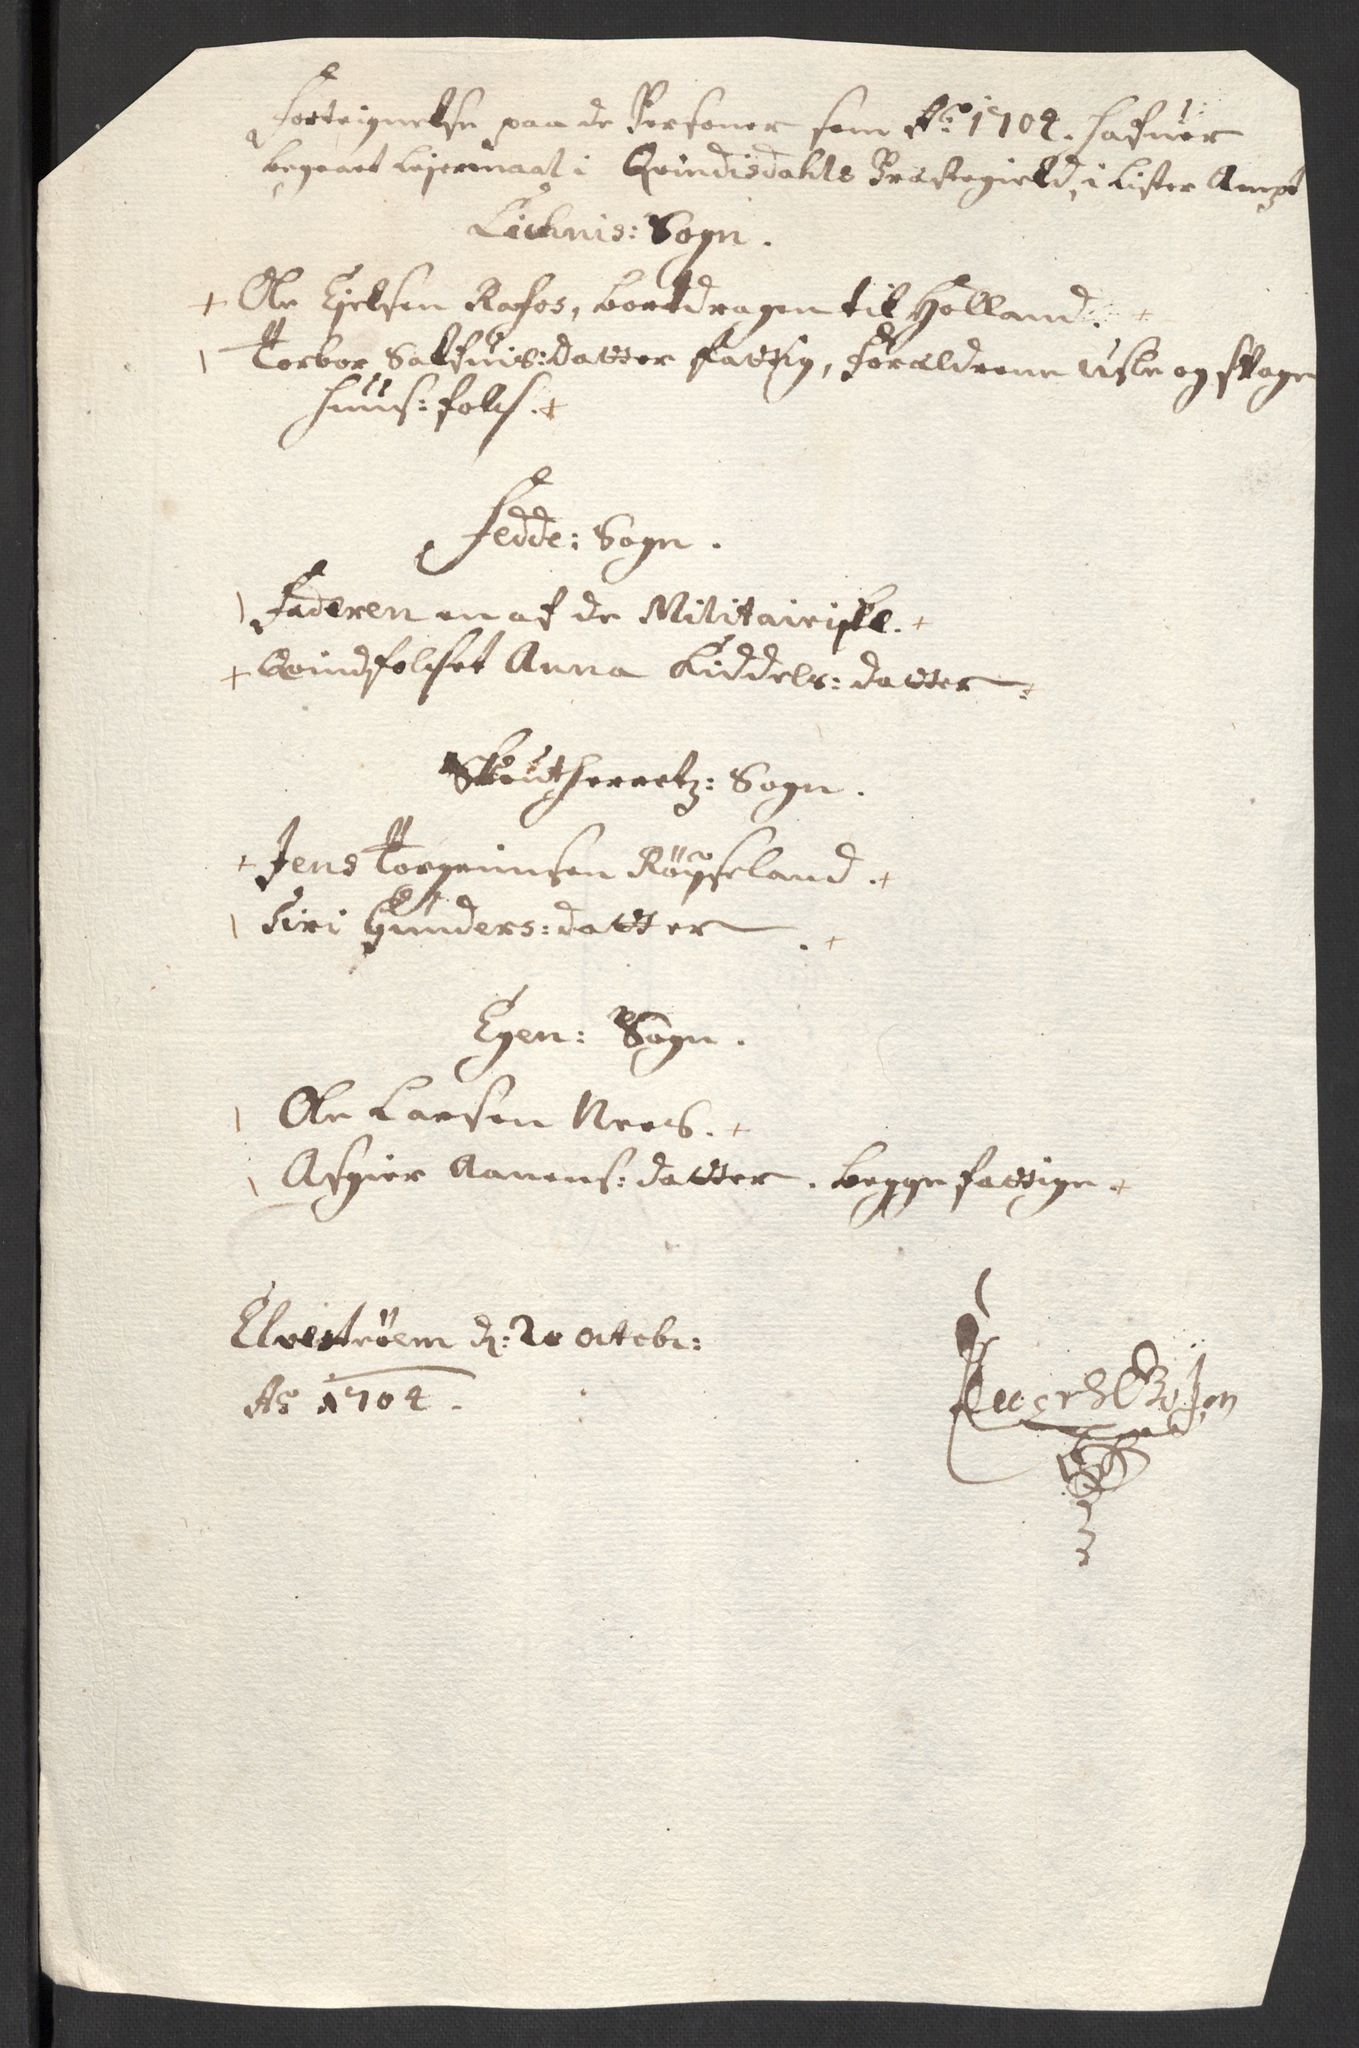 Forteignelse paa de Persaner som Aº 1704. hafuer
begaaet Lejermaal i Qvindisdahls Præstegield, i Lister Ampt
Liichnis: Sogn.
+ Ole Ejelsen Rafos, bortdragen til Holland. +
\ Torbor Salfuis: datter fattig, Foraeldrene usle og svage
huus: folch. +
Fedde: Sogn.
\ Faderen en af de Militairiske. +
+ Qvindfolchet Anna Kiddels: datter. +
Skeutherretz: Sogn.
+ Jens Torgrimsen Röyseland. +
\ Siri Gunders: datter. +
Egen: Sogn.
\ Ole Larsen Nees. +
\ Asgier Aanens: datter. begge fattige +
Elveströem d: 20 octobr:
Aº 1704.